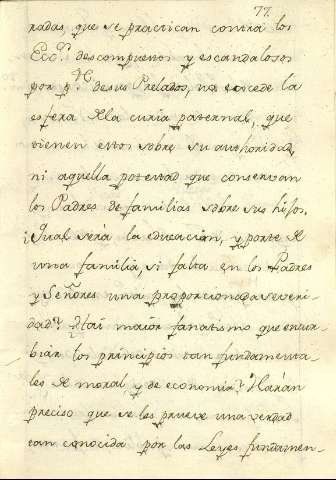 77.
radas, que se practican contra los
Ecc.os descompuestos y escandalosos
por de sus Prelados, no excede la
esfera de la curia paternal, que
tienen estos sobre su authoridad,
ni aquella potestad que conservan
los Padres de familias sobre sus hijos.
¿Qual será la educacion, y porte de
una familia, si falta en los Padres
y Señores una proporcionada severi-
dad? Hai maior fanatismo que entur-
biar los principios tan fundamenta-
les de moral, y de economia? Harán
preciso que se les prueve una verdad
tan conocida por las Leyes fundamen-